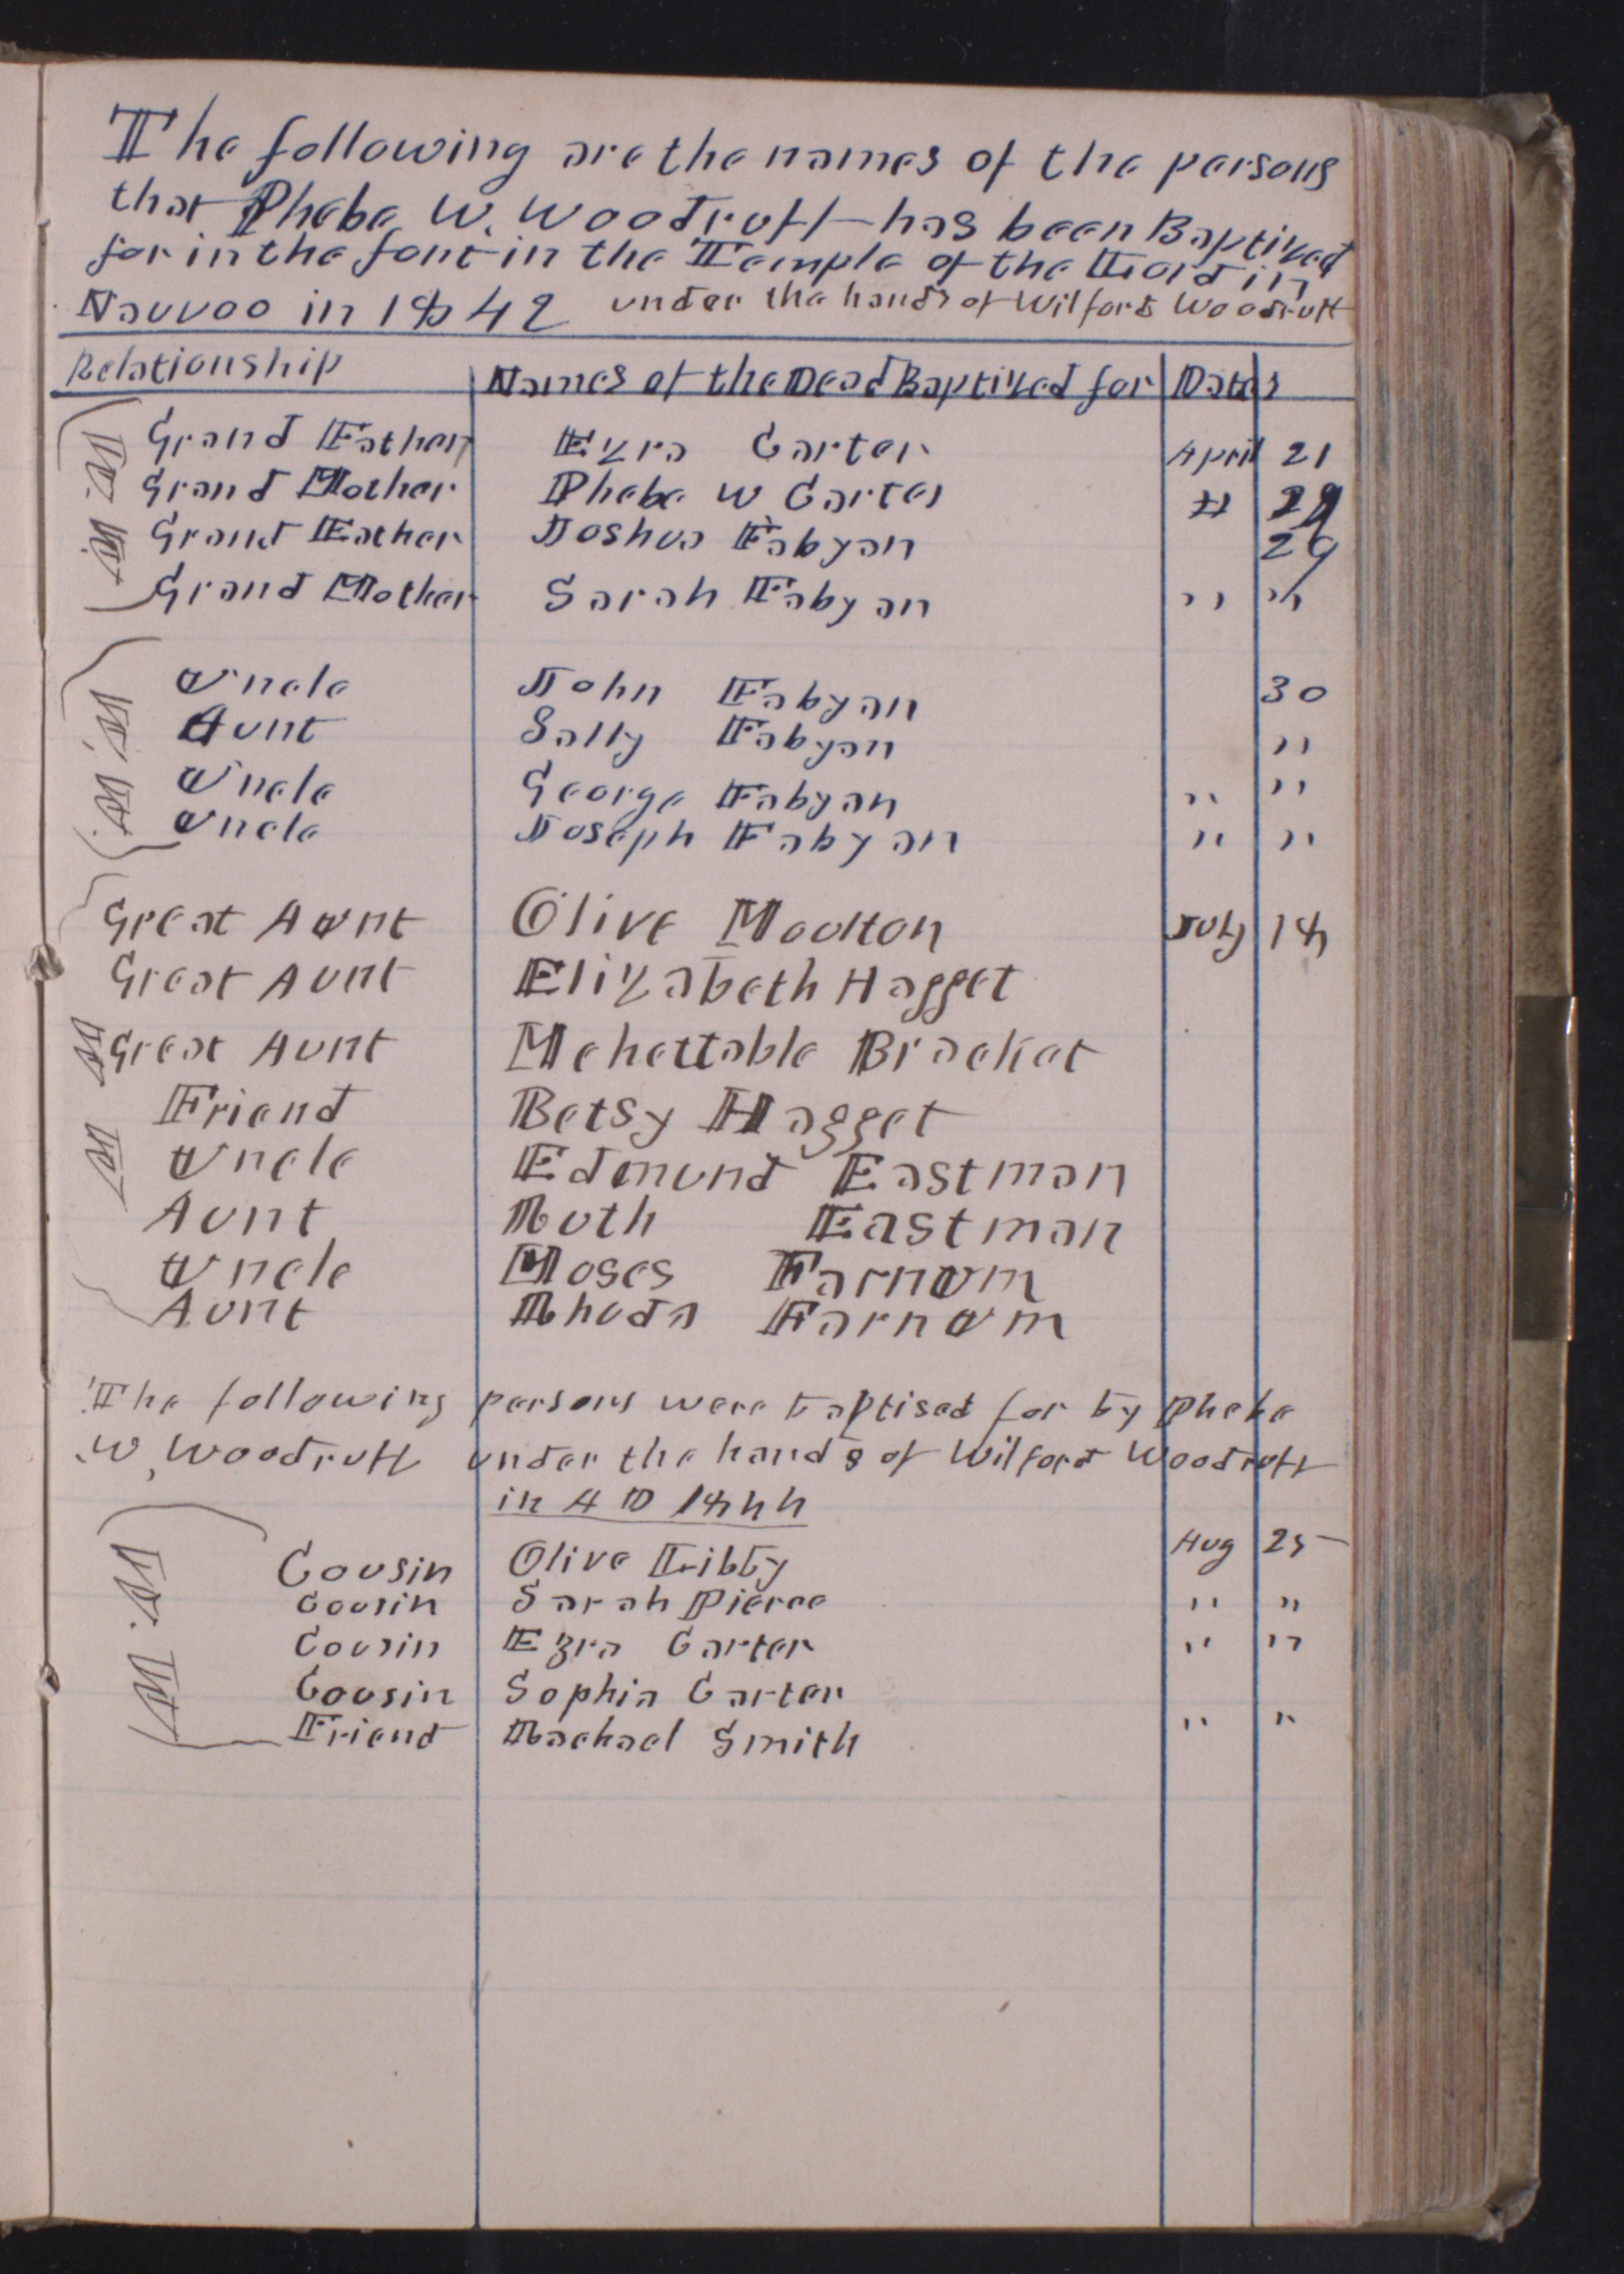 The following are the names of the persons
that Phebe W. Woodruff has been Baptized
for in the font in the Temple of the Lord in
Nauvoo in 1842 under the hands of Wilford Woodruff
Relationship Names of the Dead Baptized for Dates
Grand Father Ezra Carter April 21
Grand Mother Phebe W Carter " 29
Grand Father Joshua Fabyan 29
Grand Mother Sarah Fabyan " "
Uncle John Fabyan 30
Aunt Sally Fabyan "
Uncle George Fabyan " "
Uncle Joseph Fabyan " "
Great Aunt Olive Moulton July 18
Great Aunt Elizabeth Hagget
Great Aunt Mehettable Bracket
Friend Betsy Hagget
Uncle Edmund Eastman
Aunt Ruth Eastman
Uncle Moses Farnum
Aunt Rhoda Farnum
W. W.
W. W.
W W
The following persons were baptised for by Phebe
W, Woodruff under the hands of Wilford Woodruff
in A D 1844
Cousin Olive Libby Aug 25
Cousin Sarah Pierce " "
Cousin Ezra Carter " "
Cousin Sophia Carter
Friend Rachael Smith " "
W. W.